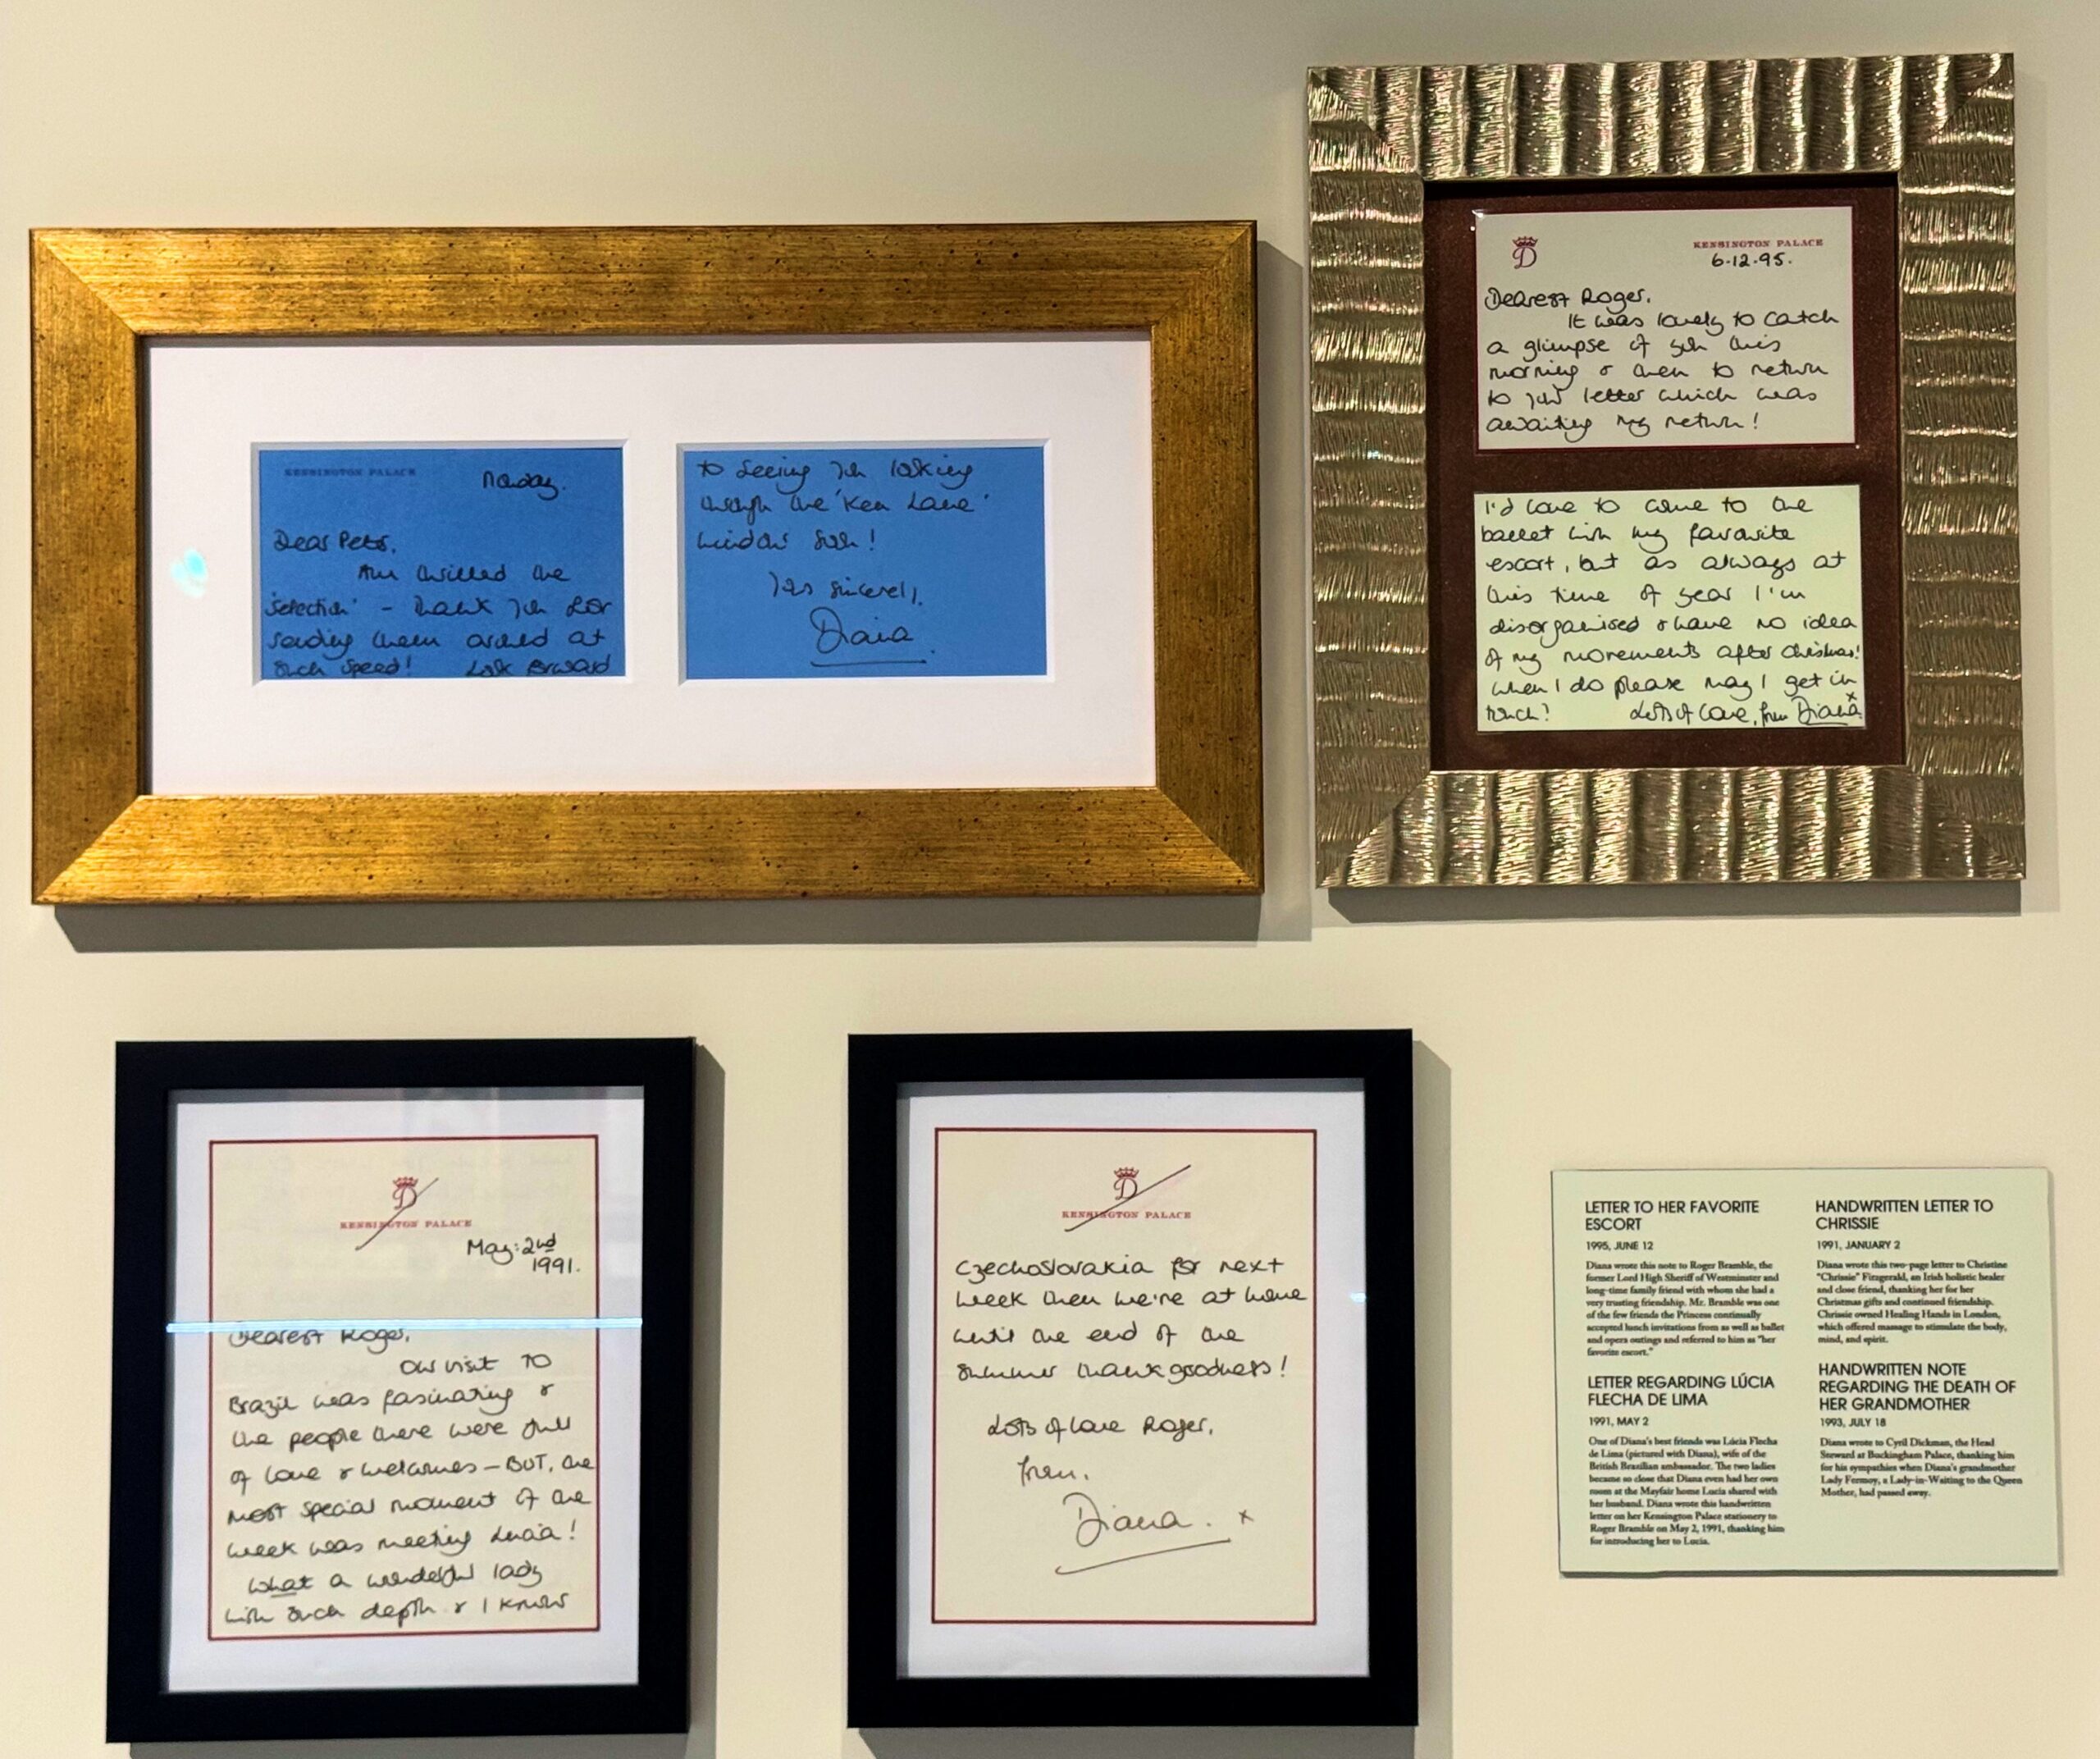 KENSINGTON PALACE
Monday.
Dear Peter,
Am thrilled the
'selection' - thank you for
sending them around at
such speed! Look forward
to seeing you looking
through the 'Ken Lane'
window soon!
Yours sincerely,
Diana
D
KENSINGTON PALACE
6.12.95.
Dearest Roger,
It was lovely to catch
a glimpse of you this
morning & then to return
to your letter which was
awaiting my return!
I'd love to come to the
ballet with my favourite
escort, but as always at
this time of year I'm
disorganised & have no idea
of my movements after Christmas!
When I do please may I get in
touch? Lots of love, from Diana x
D
KENSINGTON PALACE
May: 2nd
1991.
Dearest Roger,
Our visit to
Brazil was fascinating &
the people there were full
of love & welcomes - BUT, the
most special moment of the
week was meeting Lucia!
What a wonderful lady
with such depth & I know
D
KENSINGTON PALACE
Czechoslovakia for next
week then we're at home
until the end of the
summer thank goodness!
Lots of love Roger,
from,
Diana. x
LETTER TO HER FAVORITE
ESCORT
1995, JUNE 12
Diana wrote this note to Roger Bramble, the
former Lord High Sheriff of Westminster and
long-time family friend with whom she had a
very trusting friendship. Mr. Bramble was one
of the few friends the Princess continually
accepted lunch invitations from as well as ballet
and opera outings and referred to him as "her
favorite escort."
LETTER REGARDING LÚCIA
FLECHA DE LIMA
1991, MAY 2
One of Diana's best friends was Lúcia Flecha
de Lima (pictured with Diana), wife of the
British Brazilian ambassador. The two ladies
became so close that Diana even had her own
room at the Mayfair home Lucia shared with
her husband. Diana wrote this handwritten
letter on her Kensington Palace stationery to
Roger Bramble on May 2, 1991, thanking him
for introducing her to Lucia.
HANDWRITTEN LETTER TO
CHRISSIE
1991, JANUARY 2
Diana wrote this two-page letter to Christine
"Chrissie" Fitzgerald, an Irish holistic healer
and close friend, thanking her for her
Christmas gifts and continued friendship.
Chrissie owned Healing Hands in London,
which offered massage to stimulate the body,
mind, and spirit.
HANDWRITTEN NOTE
REGARDING THE DEATH OF
HER GRANDMOTHER
1993, JULY 18
Diana wrote to Cyril Dickman, the Head
Steward at Buckingham Palace, thanking him
for his sympathies when Diana's grandmother
Lady Fermoy, a Lady-in-Waiting to the Queen
Mother, had passed away.